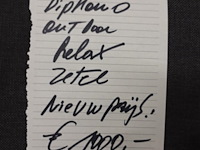 Diphano
outdoor
Relax
zetel
Nieuwprijs!
€ 1000,-